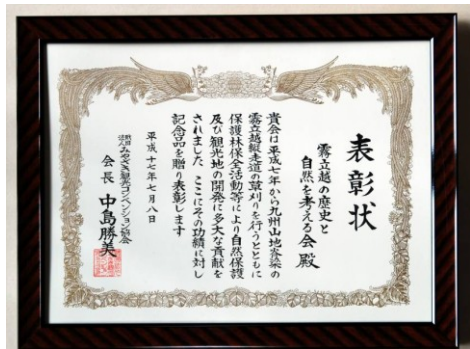 表彰状
霧立越の歴史と
自然を考える会 殿
貴会は平成七年から九州山地霧立の
霧立越縦走道の草刈りを行うとともに
保護林保全活動等により自然保護
及び観光地の開発に多大な貢献を
されました ここにその功績に対し
記念品を贈り表彰します
平成十七年七月八日
財団法人 みやざき観光コンベンション協会
会長 中島勝美